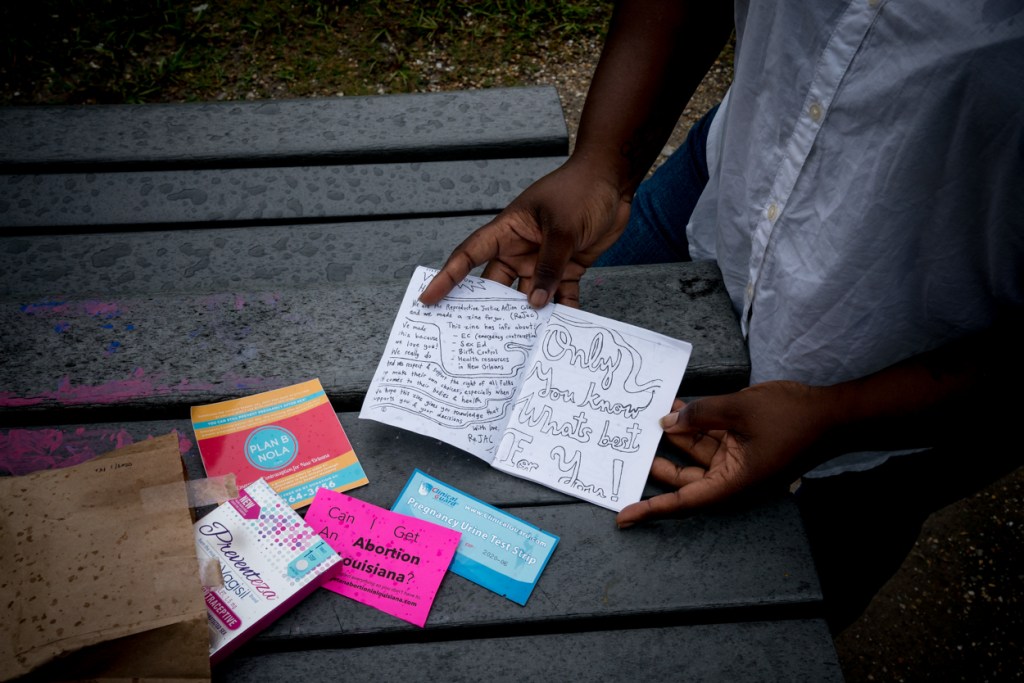 We are the Reproductive Justice Action
and we made a zine for you. (ReJAC)
We made
this because
we love you!
We really do
This zine has info about:
- EC (emergency contraception)
- Sex Ed
- Birth Control
- Health resources
in New Orleans
the right of all folks
to make their own choices, especially when
it comes to their bodies & health
We hope this gives you knowledge that
supports you & your decisions
With love,
ReJAC
Only
You know
Whats best
For You!
PLAN B
NOLA
for New Orleans
Preventeza
Vagisil
Can I Get
An Abortion
Louisiana?
Pregnancy Urine Test Strip